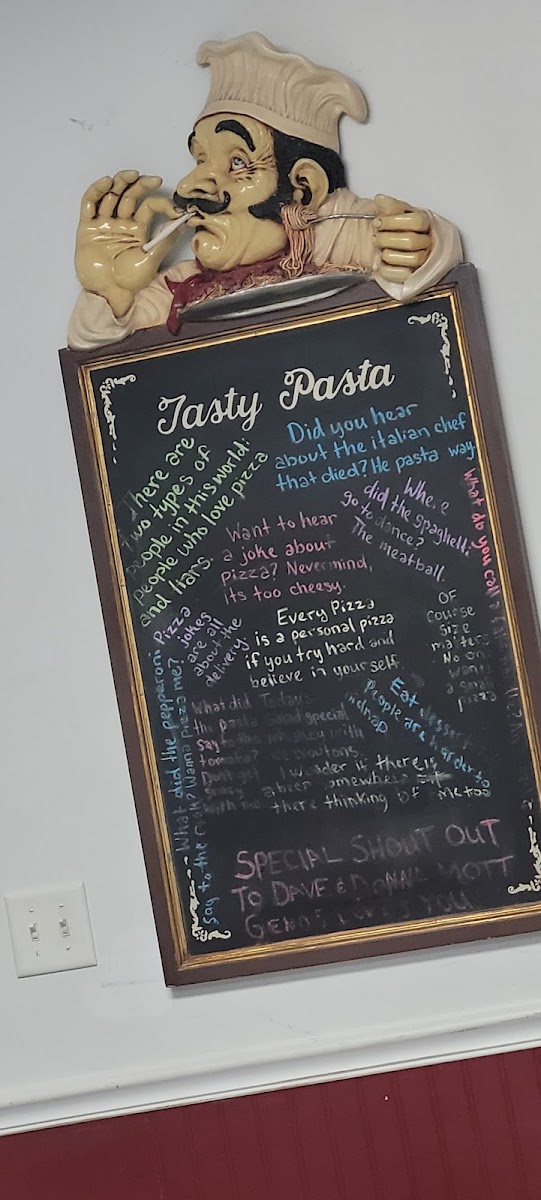 Tasty Pasta
Did you hear
about the italian chef
that died? He pasta way
There are
two types of
people in this world:
people who love pizza
and liars.
Where
did the spaghetti
go to dance?
The meatball.
What do you call a
Want to hear
a joke about
pizza? Nevermind,
its too cheesy.
Pizza
jokes
are all
about the
delivery.
Every Pizza
is a personal pizza
if you try hard and
believe in yourself.
OF
course
size
matters
No one
wants
a small
pizza
What did the pepperoni
say to the cook? Wanna pizza me?
What did
the pasta
say to the
tomato?
Dont get
saucy
with me
Today's
salad special
whiskey with
croutons.
Eat dessert
People are harder to
kidnap
I wonder is there is
a beer somewhere out
there thinking of me too
SPECIAL SHOUT OUT
TO DAVE & DONNA MOTT
GENOS LOVES YOU